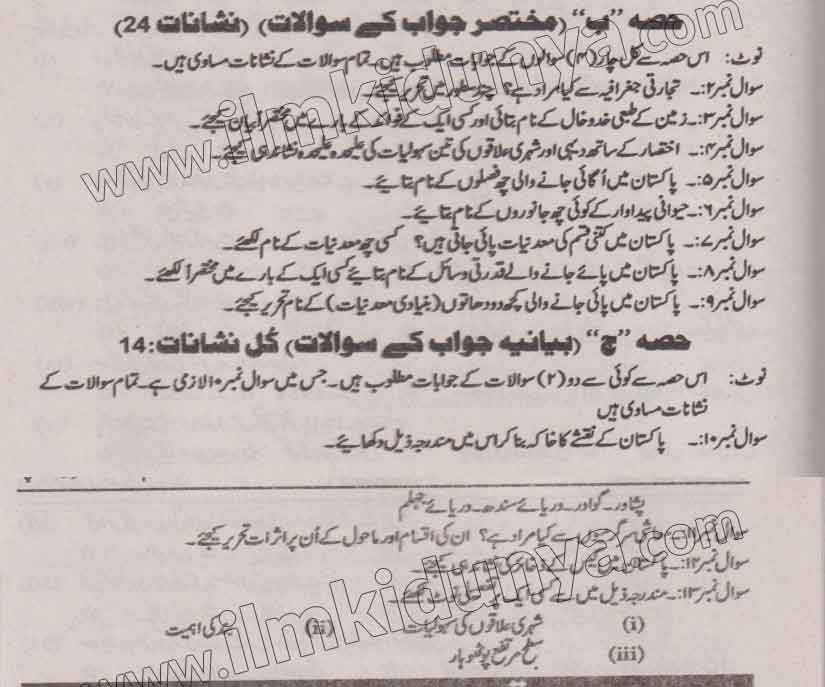 حصہ "ب" (مختصر جواب کے سوالات) (نشانات 24)
نوٹ: اس حصہ سے کل چار (۴) سوالوں کے جوابات مطلوب ہیں۔ تمام سوالات کے نشانات مساوی ہیں۔
سوال نمبر ۲:۔ تجارتی جغرافیہ سے کیا مراد ہے؟ چند سطور میں تحریر کیجئے۔
سوال نمبر ۳:۔ زمین کے طبعی خدوخال کے نام بتائی اور کسی ایک کے فوائد کے بارے میں مختصراً بیان کیجئے۔
سوال نمبر ۴:۔ اختصار کے ساتھ دیہی اور شہری علاقوں کی تین سہولیات کی علیحدہ علیحدہ نشاندہی کیجئے۔
سوال نمبر ۵:۔ پاکستان میں اُگائی جانے والی چھ فصلوں کے نام بتایئے۔
سوال نمبر ۶:۔ حیوانی پیداوار کے کوئی چھ جانوروں کے نام بتایئے۔
سوال نمبر ۷:۔ پاکستان میں کتنی قسم کی معدنیات پائی جاتی ہیں؟ کسی چھ معدنیات کے نام لکھئے۔
سوال نمبر ۸:۔ پاکستان میں پائے جانے والے قدرتی وسائل کے نام بتایئے کسی ایک کے بارے میں مختصراً لکھئے۔
سوال نمبر ۹:۔ پاکستان میں پائی جانے والی کچھ دودھاتوں (بنیادی معدنیات) کے نام تحریر کیجئے۔
حصہ "ج" (بیانیہ جواب کے سوالات) کُل نشانات: 14
نوٹ: اس حصہ سے کوئی سے دو (۲) سوالات کے جوابات مطلوب ہیں۔ جس میں سوال نمبر ۱۰ لازمی ہے۔ تمام سوالات کے
نشانات مساوی ہیں
سوال نمبر ۱۰:۔ پاکستان کے نقشے کا خاکہ بنا کر اس میں مندرجہ ذیل دکھایئے۔
پشاور۔ گوادر۔ دریائے سندھ۔ دریائے جہلم
سوال نمبر ۱۱:۔ معاشی سرگرمیوں سے کیا مراد ہے؟ ان کی اقسام اور ماحول کے اُن پر اثرات تحریر کیجئے۔
سوال نمبر ۱۲:۔ پاکستان میں گیس کے ذخائر کی نشاندہی کیجئے۔
سوال نمبر ۱۳:۔ مندرجہ ذیل میں سے کسی ایک پر تفصیلی نوٹ لکھئے۔
(i) شہری علاقوں کی سہولیات (ii) سند کی اہمیت
(iii) سطح مرتفع پوٹھوہار
www.ilmkidunya.com
www.ilmkidunya.com